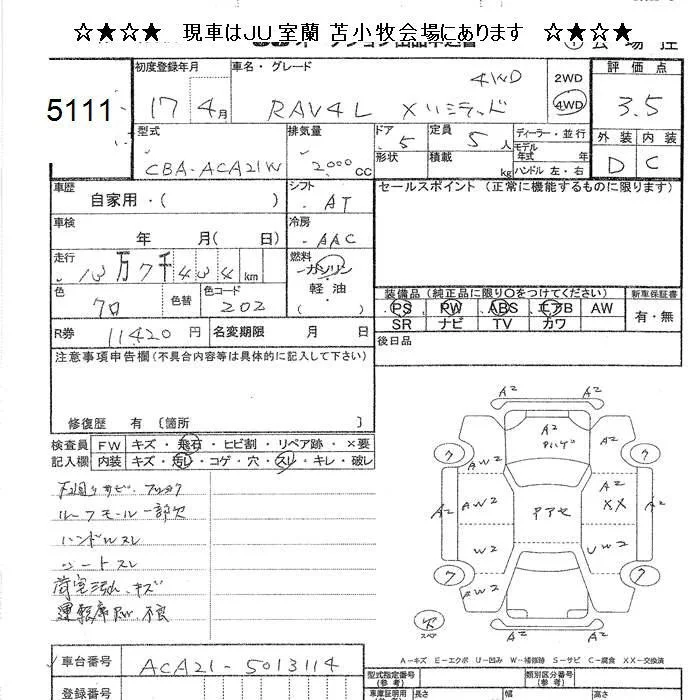 ☆★☆★ 現車はJU室蘭 苫小牧会場にあります ☆★☆★
5111
初度登録年月
17年 4月
車名・グレード
4WD
RAV4L Xリミテッド
2WD
4WD
評価点
3.5
外装 内装
D C
型式
CBA-ACA21W
排気量
2,000 CC
ドア 5
形状
定員 5 人
積載 kg
ディーラー・並行
モデル年式 年
ハンドル 左・右
車歴
自家用・( )
シフト
AT
セールスポイント (正常に機能するものに限ります)
車検
年 月( 日)
冷房
AAC
走行
13万7千434 km
燃料
ガソリン
軽油
( )
色
黒
色替
色コード
202
装備品 (純正品に限り○をつけてください)
PS PW ABS エアB AW
SR ナビ TV カワ
新車保証書
有・無
R券 11420 円
名変期限 月 日
後日品
注意事項申告欄 (不具合内容等は具体的に記入して下さい)
修復歴 有 〔箇所 〕
検査員記入欄
FW キズ・飛石・ヒビ割・リペア跡・×要
内装 キズ・汚レ・コゲ・穴・スレ・キレ・破レ
下廻りサビ
ルーフモール一部欠
ハンドルスレ
シートスレ
荷室汚れ、キズ
運転席 不良
A2 A2
A2
A2 A2
ワ ワ
AW2
A2 AW2 A2 XX A2
W2 UW2
ワ ワ
AW2 A2
欠
スペア
A2 A2
A-キズ E-エクボ U-凹み W-補修跡 S-サビ C-腐食 XX-交換済
車台番号 ACA21-5013114
登録番号
型式指定番号 (参考)
類別区分番号 (参考)
車庫証明用 長さ 幅 高さ